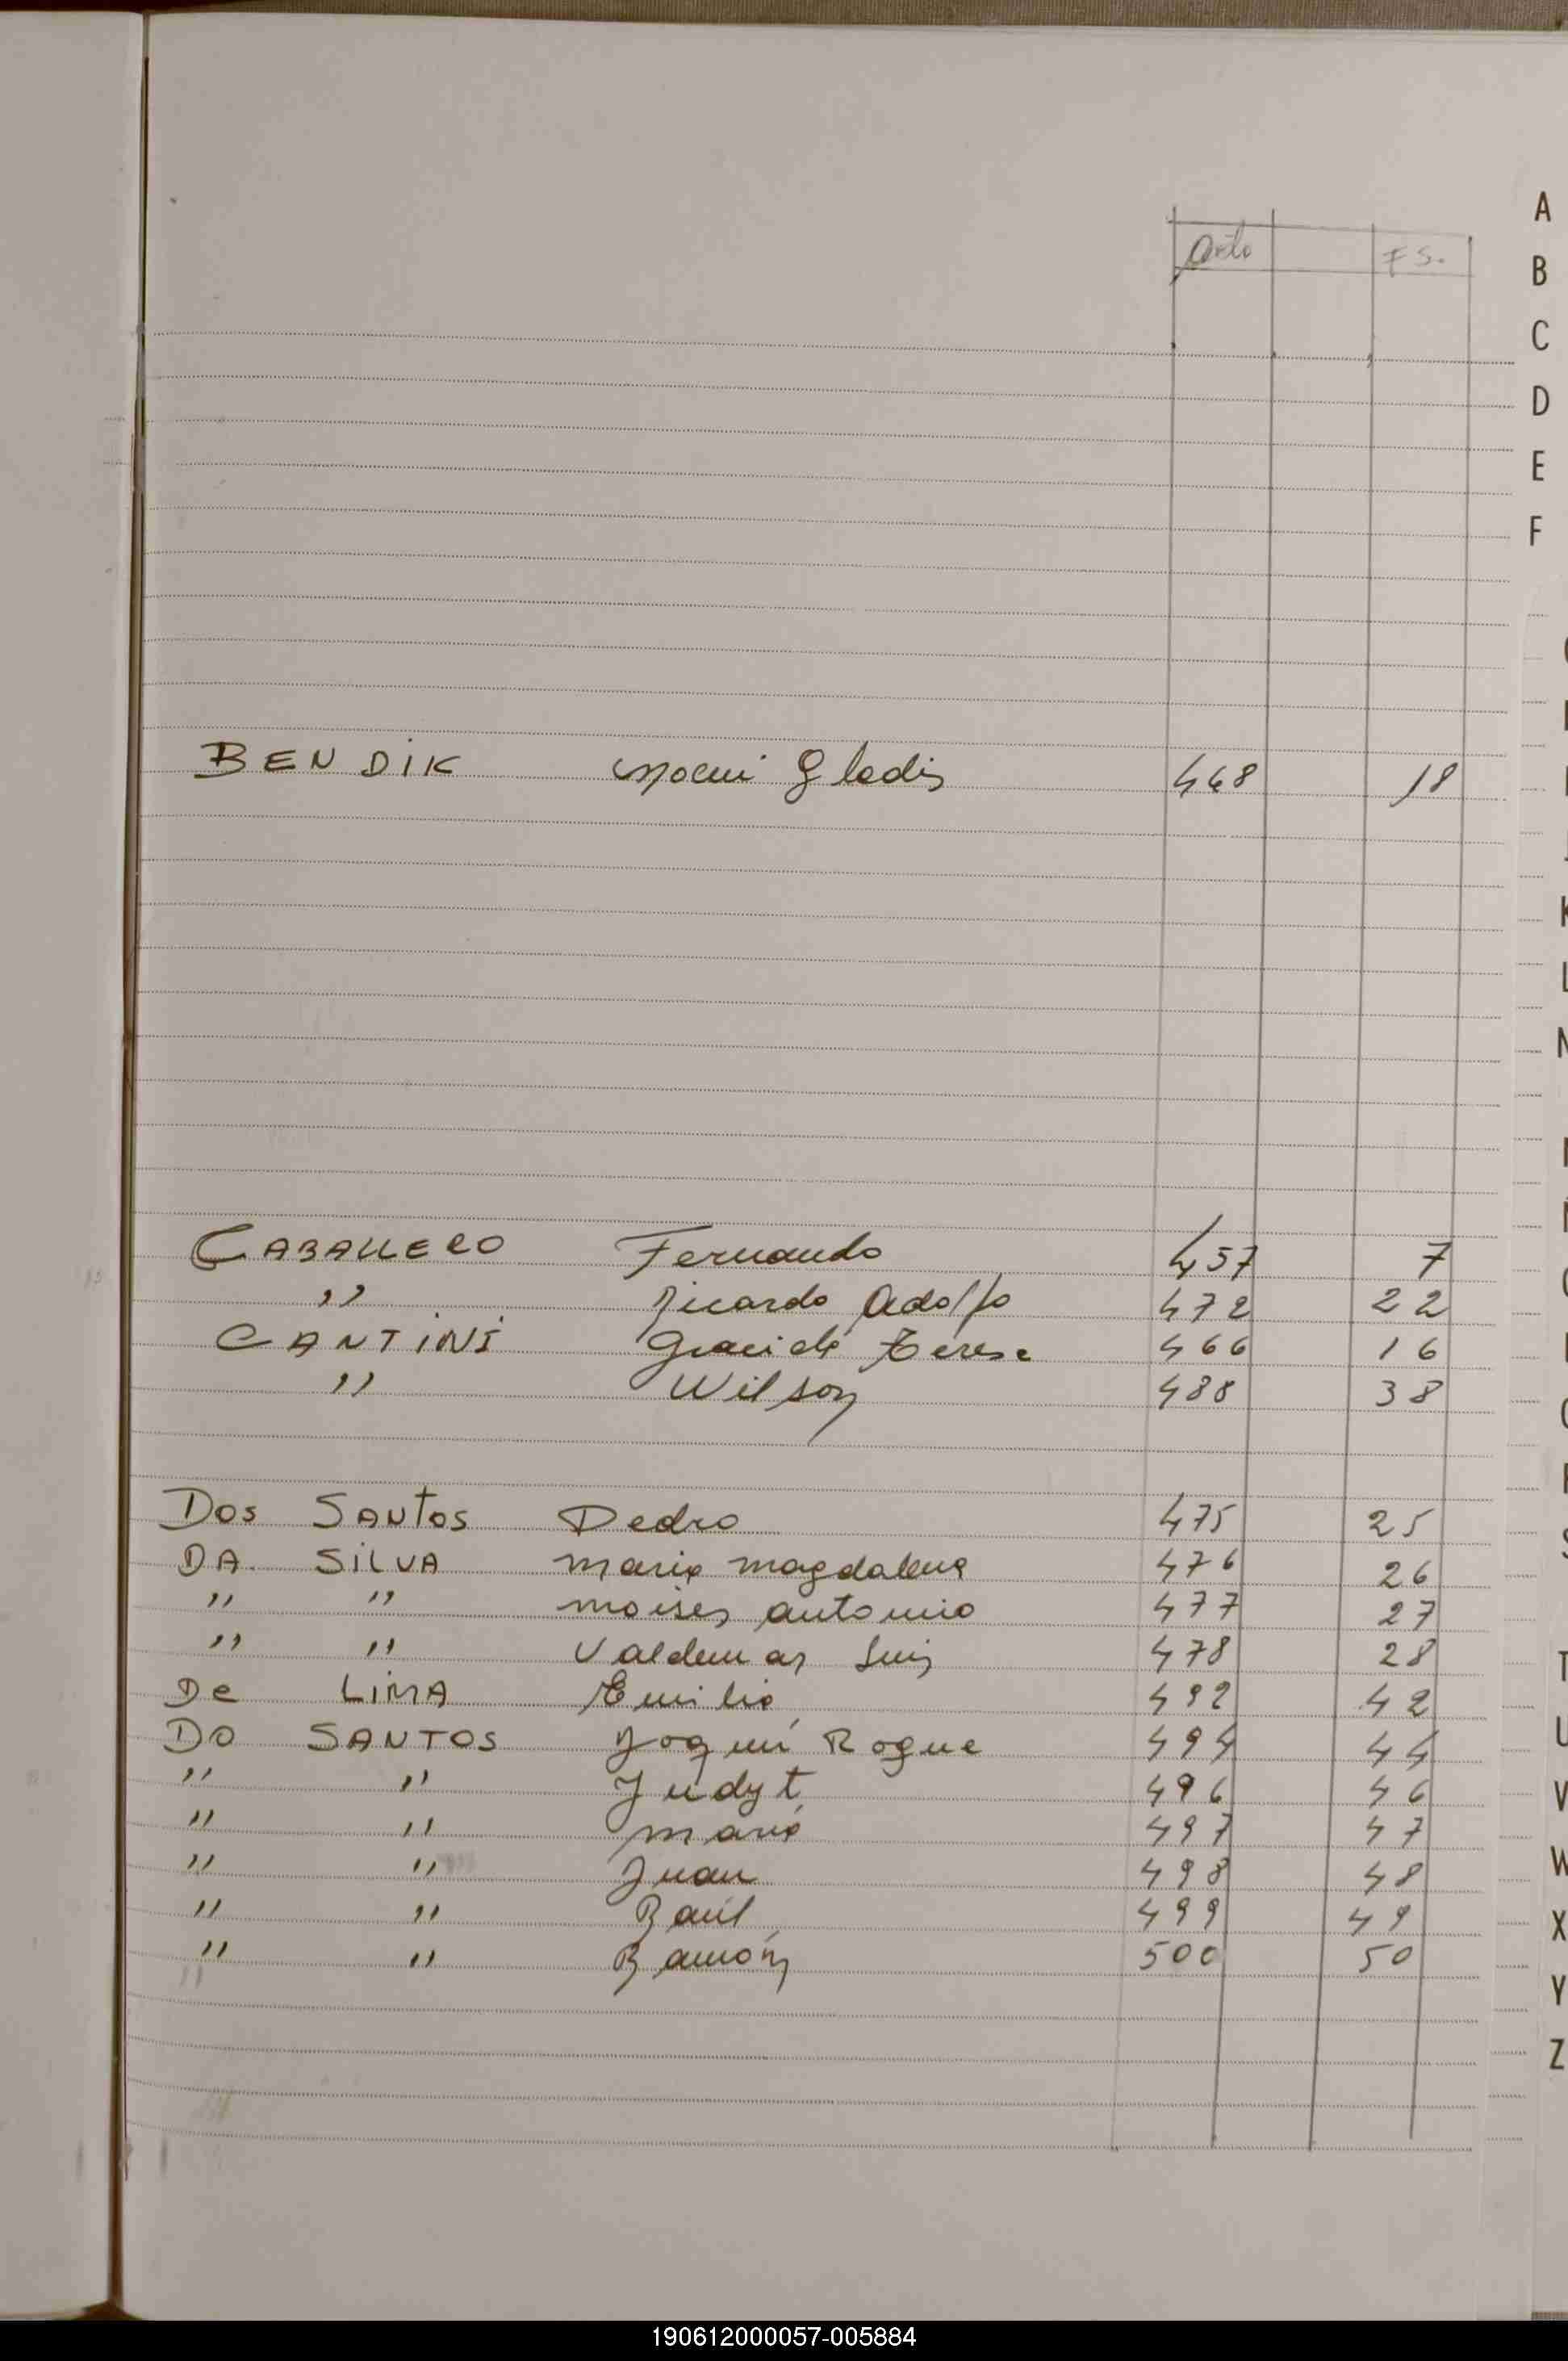 Acto FS.
A
B
C
D
E
F
BENDIK Noemi Gladis 468 18
K
L
CABALLERO Fernando 457 7
" Ricardo Adolfo 472 22
CANTINI Graciela Teresa 466 16
" Wilson 488 38
Dos SANtos Pedro 475 25
DA SILVA Maria Magdalena 476 26
" " Moises Antonio 477 27
" " Valdemar Luis 478 28
De LIMA Emilia 492 42
Do SANTOS Joquin Roque 494 44
" " Judyt 496 46
" " Maria 497 47
" " Juan 498 48
" " Raúl 499 49
" " Ramón 500 50
T
U
V
W
X
Y
Z
190612000057-005884